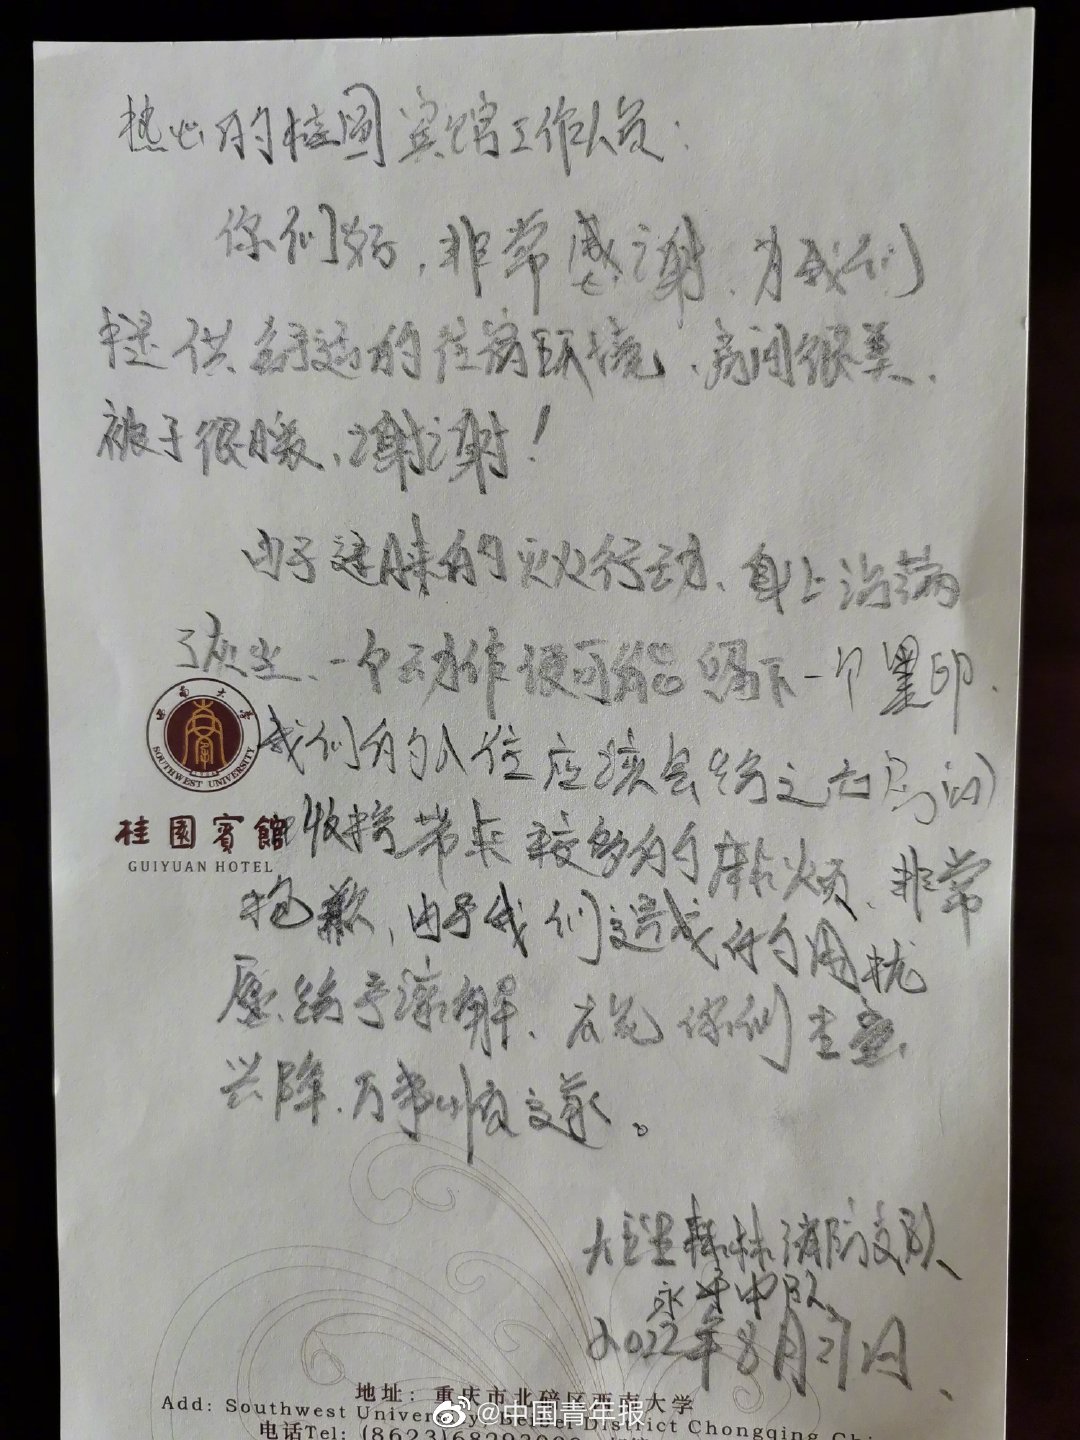 热心的桂园宾馆工作人员：
你们好，非常感谢，为我们
提供舒适的住宿环境，房间很美，
被子很暖，谢谢！
由于连日来的灭火行动，身上沾满
了灰尘，一个动作便可能留下一个墨印，
西南大学
SOUTHWEST UNIVERSITY
我们的入住应该会给之后房间
桂園賓館
GUIYUAN HOTEL
收拾带来较多的麻烦，非常
抱歉，由于我们造成的困扰
愿给予谅解，在此 你们生意
兴隆，万事顺意。
大理森林消防支队
永平中队
2022年8月27日
地址：重庆市北碚区西南大学
Add: Southwest University, Beibei District Chongqing
电话Tel: (8623)68
@中国青年报